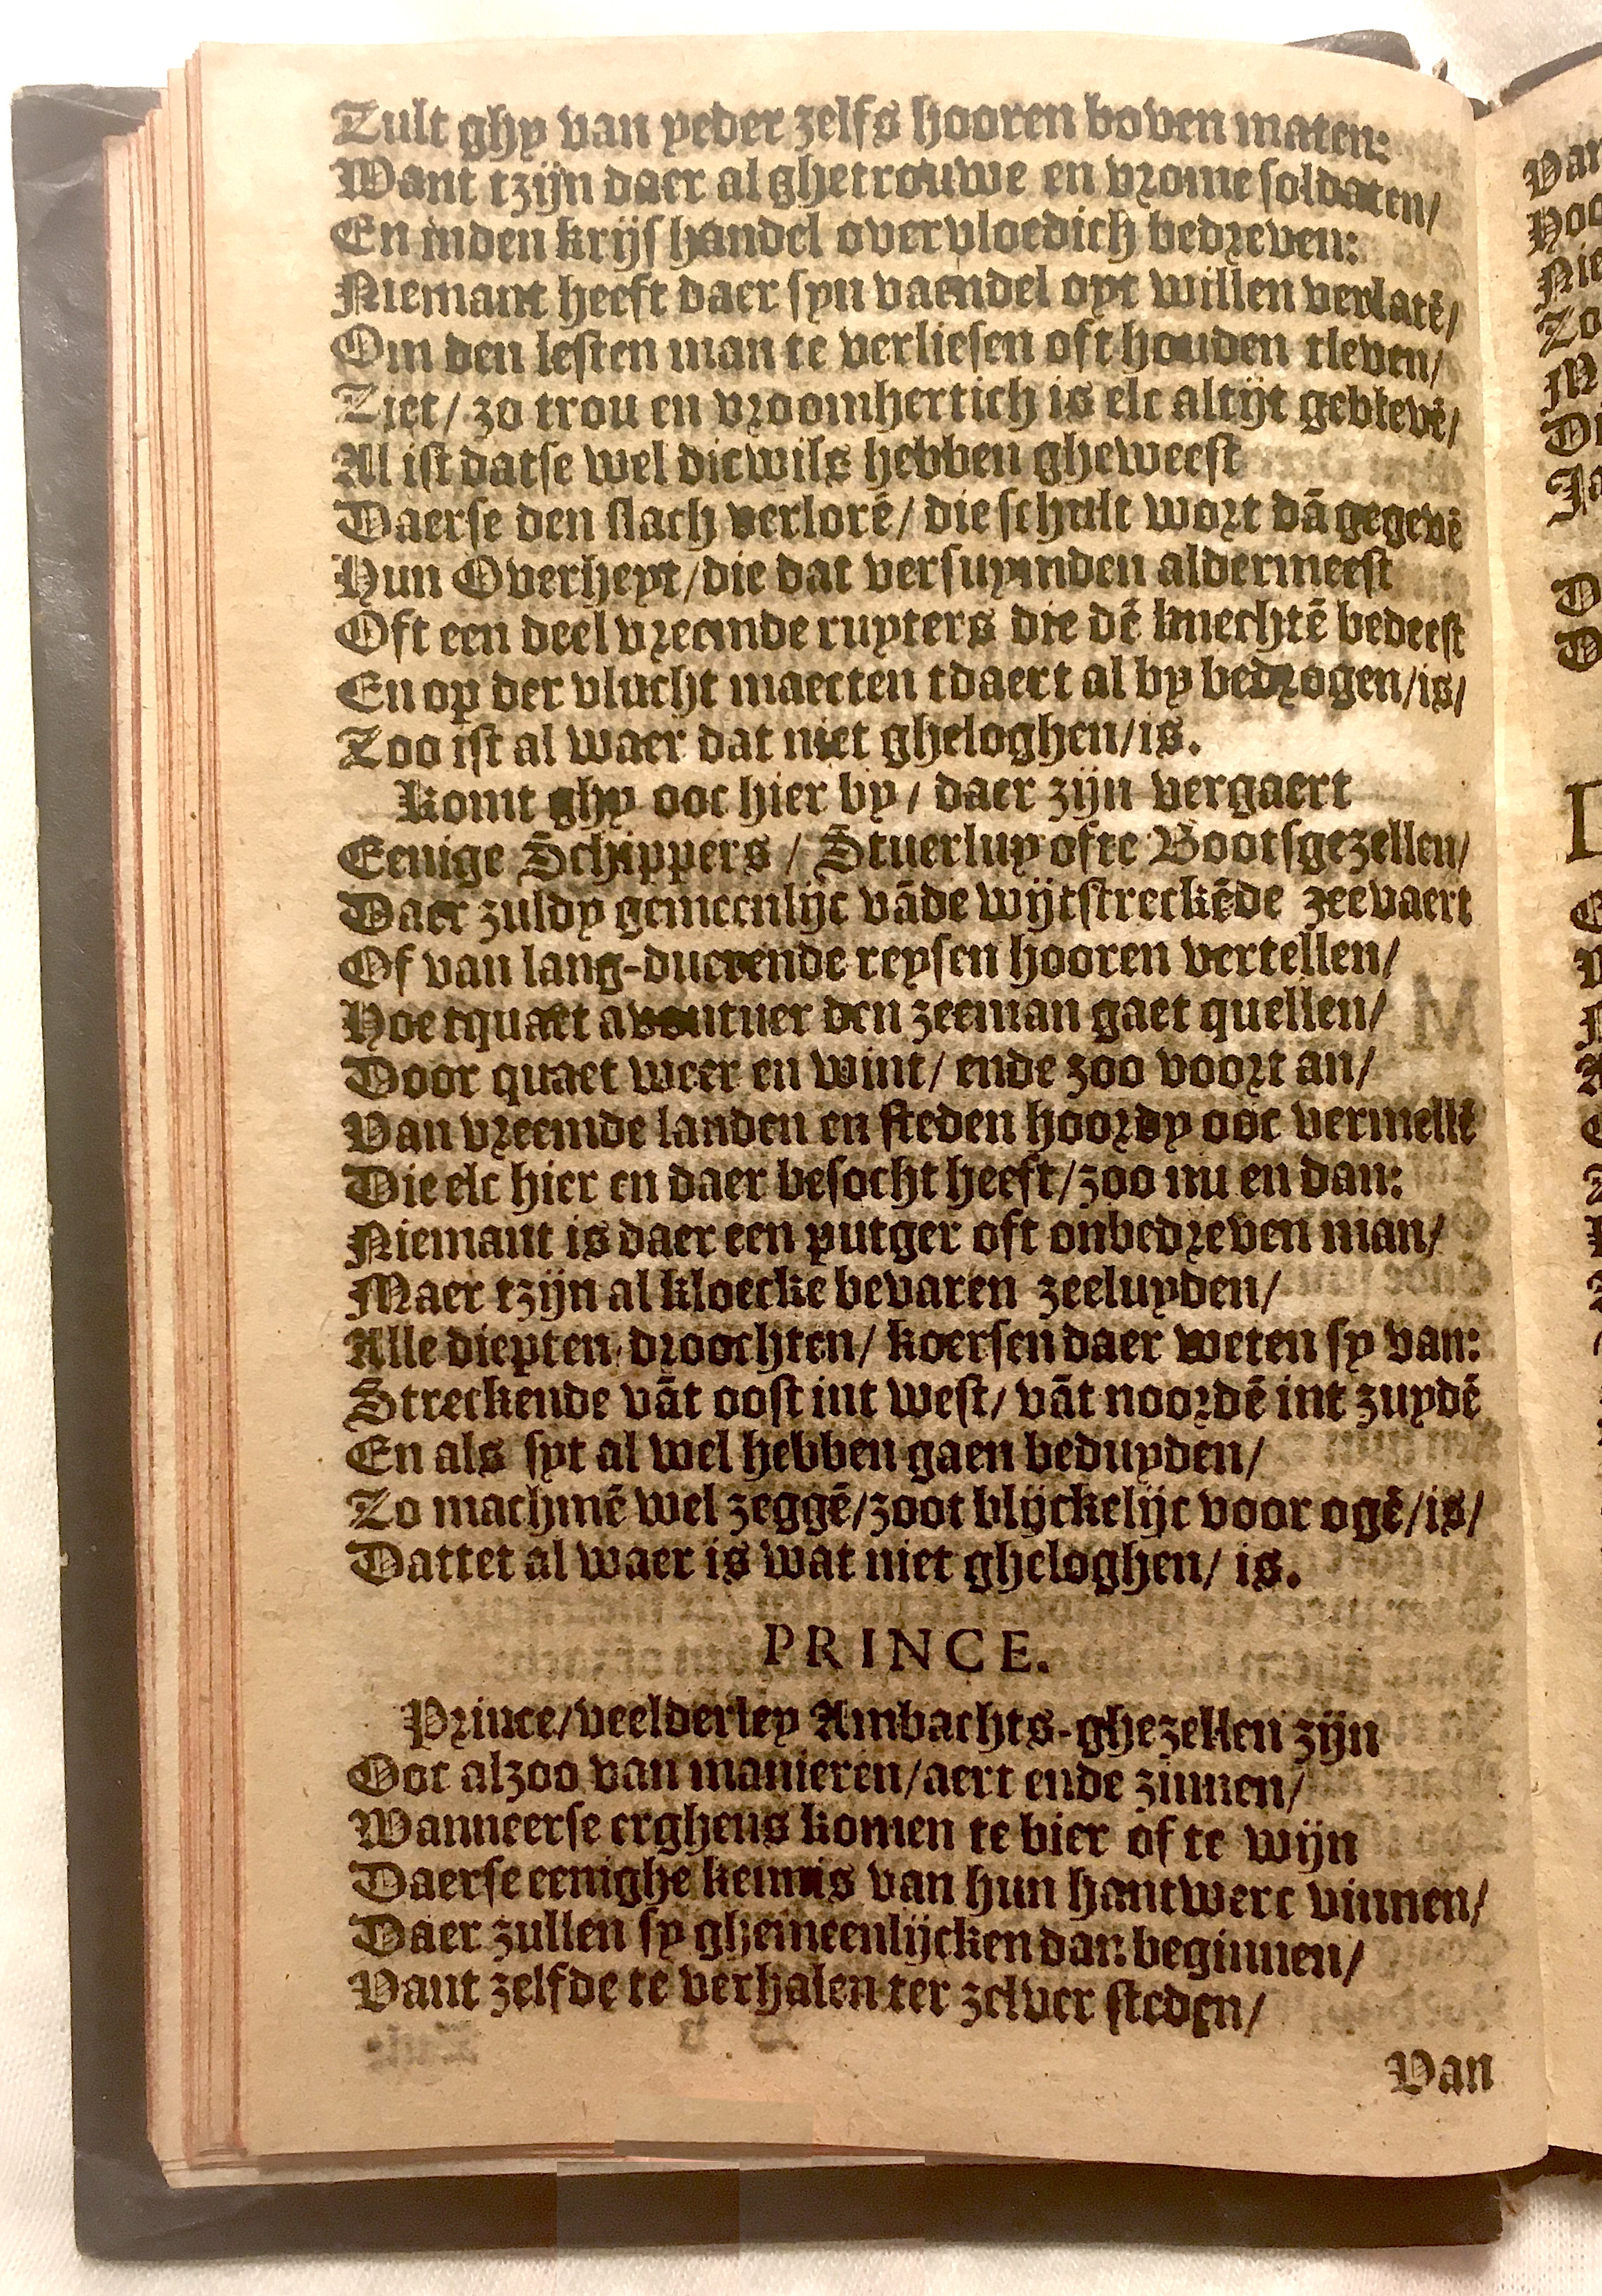 Zult ghy van yeder zelfs hooren boven maten:
Want tzijn daer al ghetrouwe en vrome soldaten/
En inden krijs handel overvloedich bedreven:
Niemant heeft daer syn vaendel oyt willen verlatē/
Om den lesten man te verliesen oft houden tleven/
Ziet/ zo trou en vroomhertich is elc altijt geblevē/
Al ist datse wel dicwils hebben gheweest
Daerse den slach verlorē/ die schult wort dā gegevē
Hun Overheyt/die dat versuymden aldermeest
Oft een deel vreemde ruyters die dē knechtē bedeest
En op der vlucht maecten tdaert al by bedrogen/is/
Zoo ist al waer dat niet gheloghen/is.
Komt ghy ooc hier by/ daer zijn vergaert
Eenige Schippers/ Stuerluy ofte Bootsgezellen/
Daer zuldy gemeenlijc vāde wijtstreckēde zeevaert
Of van lang-duerende reysen hooren vertellen/
Hoe tquaet avontuer den zeeman gaet quellen/
Door quaet weer en wint/ ende zoo voort an/
Van vreemde landen en steden hoordy ooc vermellē
Die elc hier en daer besocht heeft/zoo nu en dan:
Niemant is daer een putger oft onbedreven man/
Maer tzijn al kloecke bevaren zeeluyden/
Alle diepten/droochten/ koersen daer weten sy van:
Streckende vāt oost int west/ vāt noordē int zuydē
En als syt al wel hebben gaen beduyden/
Zo machmē wel zeggē/zoot blijckelijc voor ogē/is/
Dattet al waer is wat niet gheloghen/ is.
PRINCE.
Prince/veelderley Ambachts-ghezellen zijn
Ooc alzoo van manieren/aert ende zinnen/
Wanneerse erghens komen te bier of te wijn
Daerse eenighe kennis van hun hantwerc vinnen/
Daer zullen sy ghemeenlijcken dan beginnen/
Vant zelfde te verhalen ter zelver steden/
Van